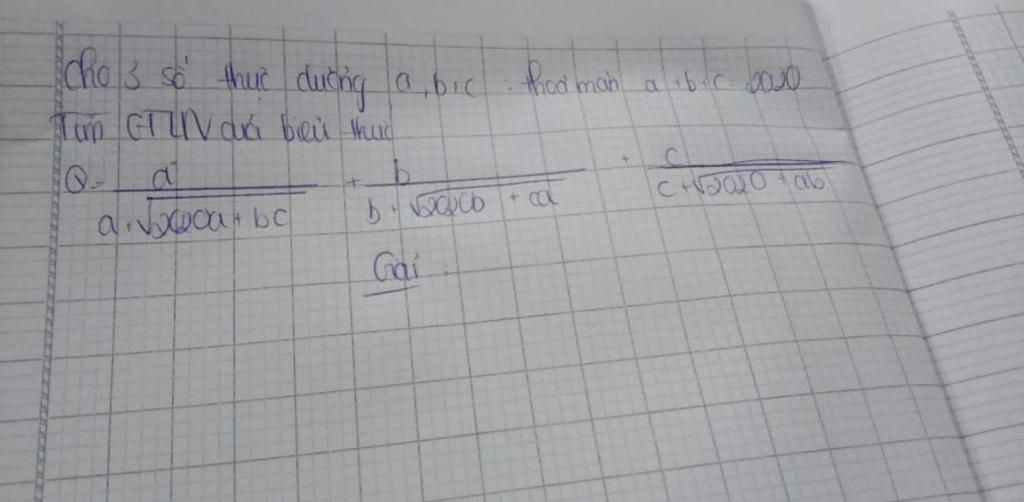 Cho 3 số thực dương a, b, c . thoả mãn a + b + c = 2020
Tìm GTLN của biểu thức
Q = a / (a + √2020a + bc) + b / (b + √2020b + ca) + c / (c + √2020 + ab)
Giải :